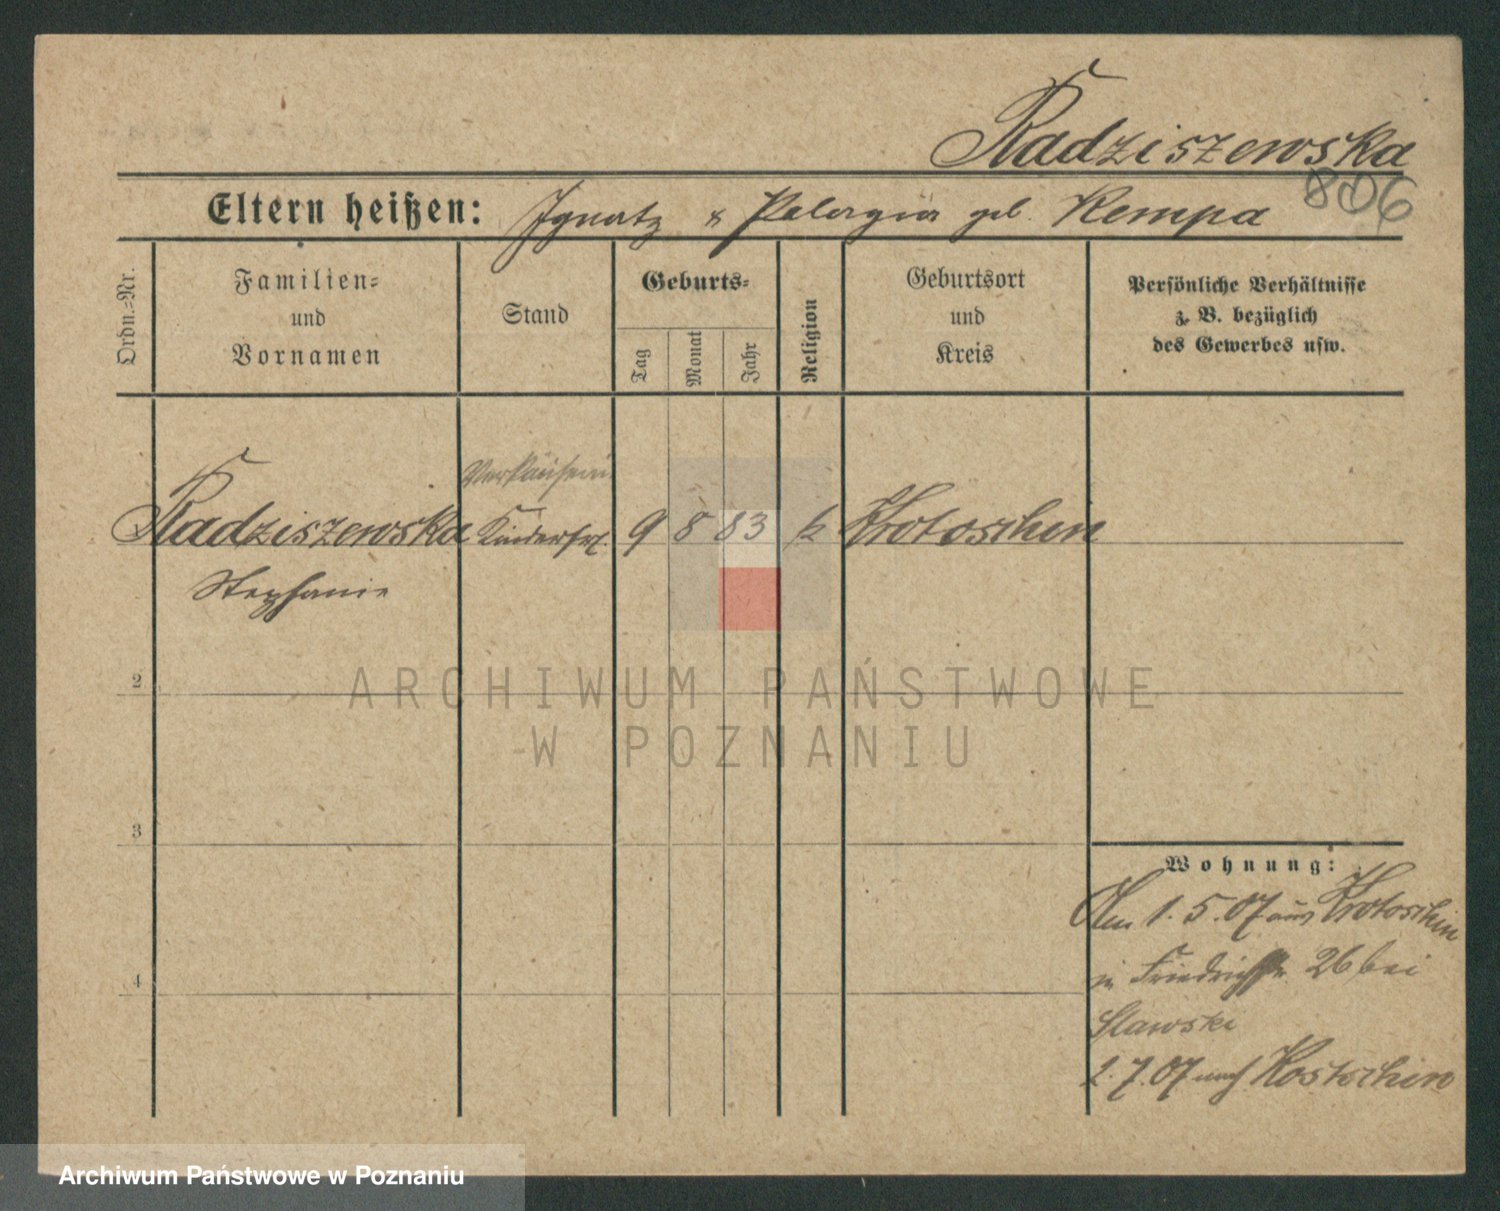 Radziszewska
806
Eltern heißen: Ignatz u Pelagia geb. Kempa
Ordn.=Nr.
Familien=
und
Vornamen
Stand
Geburts=
Tag
Monat
Jahr
Religion
Geburtsort
und
Kreis
Persönliche Verhältnisse
z. B. bezüglich
des Gewerbes usw.
Verkäuferin
Radziszewska Kinderfrl. 9 8 83 k Krotoschin
Stephanie
2
3
4
Wohnung:
Am 1.5.07 aus Krotoschin
in Friedrichstr. 26 bei
Slawski
2.7.07 nach Kostschin
ARCHIWUM PAŃSTWOWE
W POZNANIU
Archiwum Państwowe w Poznaniu